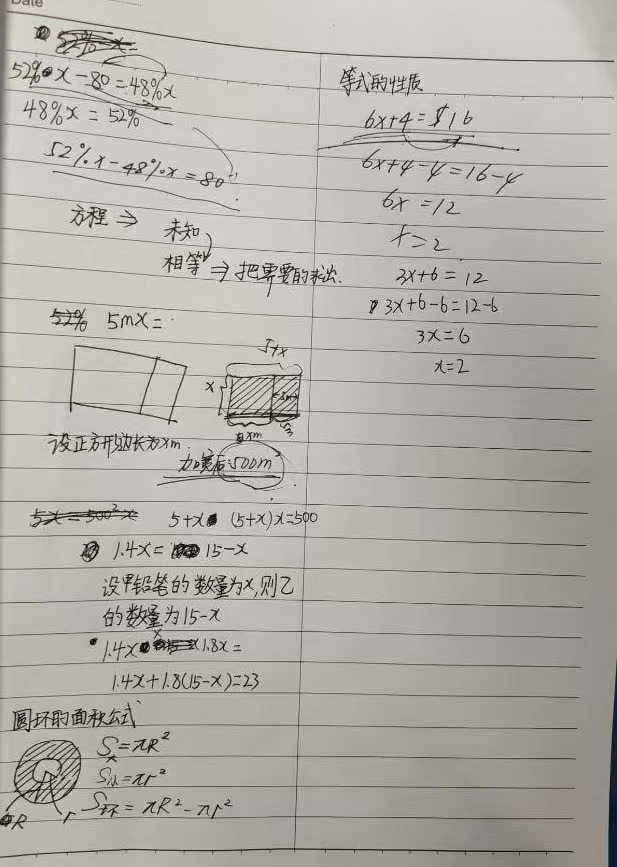 Date
52%·x-80=48%x
48%x=52%
52%x-48%x=80
方程⇒ 未知
相等⇒把需要的求出.
5mx=
5+x
x
5m
xm
5m
设正方形边长为xm.
加宽后:500m²
5+x (5+x)x=500
1.4x= 15-x
设甲铅笔的数量为x,则乙
的数量为15-x
1.4x 1.8x=
1.4x+1.8(15-x)=23
圆环的面积公式
S大=πR²
S小=πr²
S环=πR²-πr²
R r
等式的性质
6x+4=16
6x+4-4=16-4
6x=12
x=2
3x+6=12
3x+6-6=12-6
3x=6
x=2